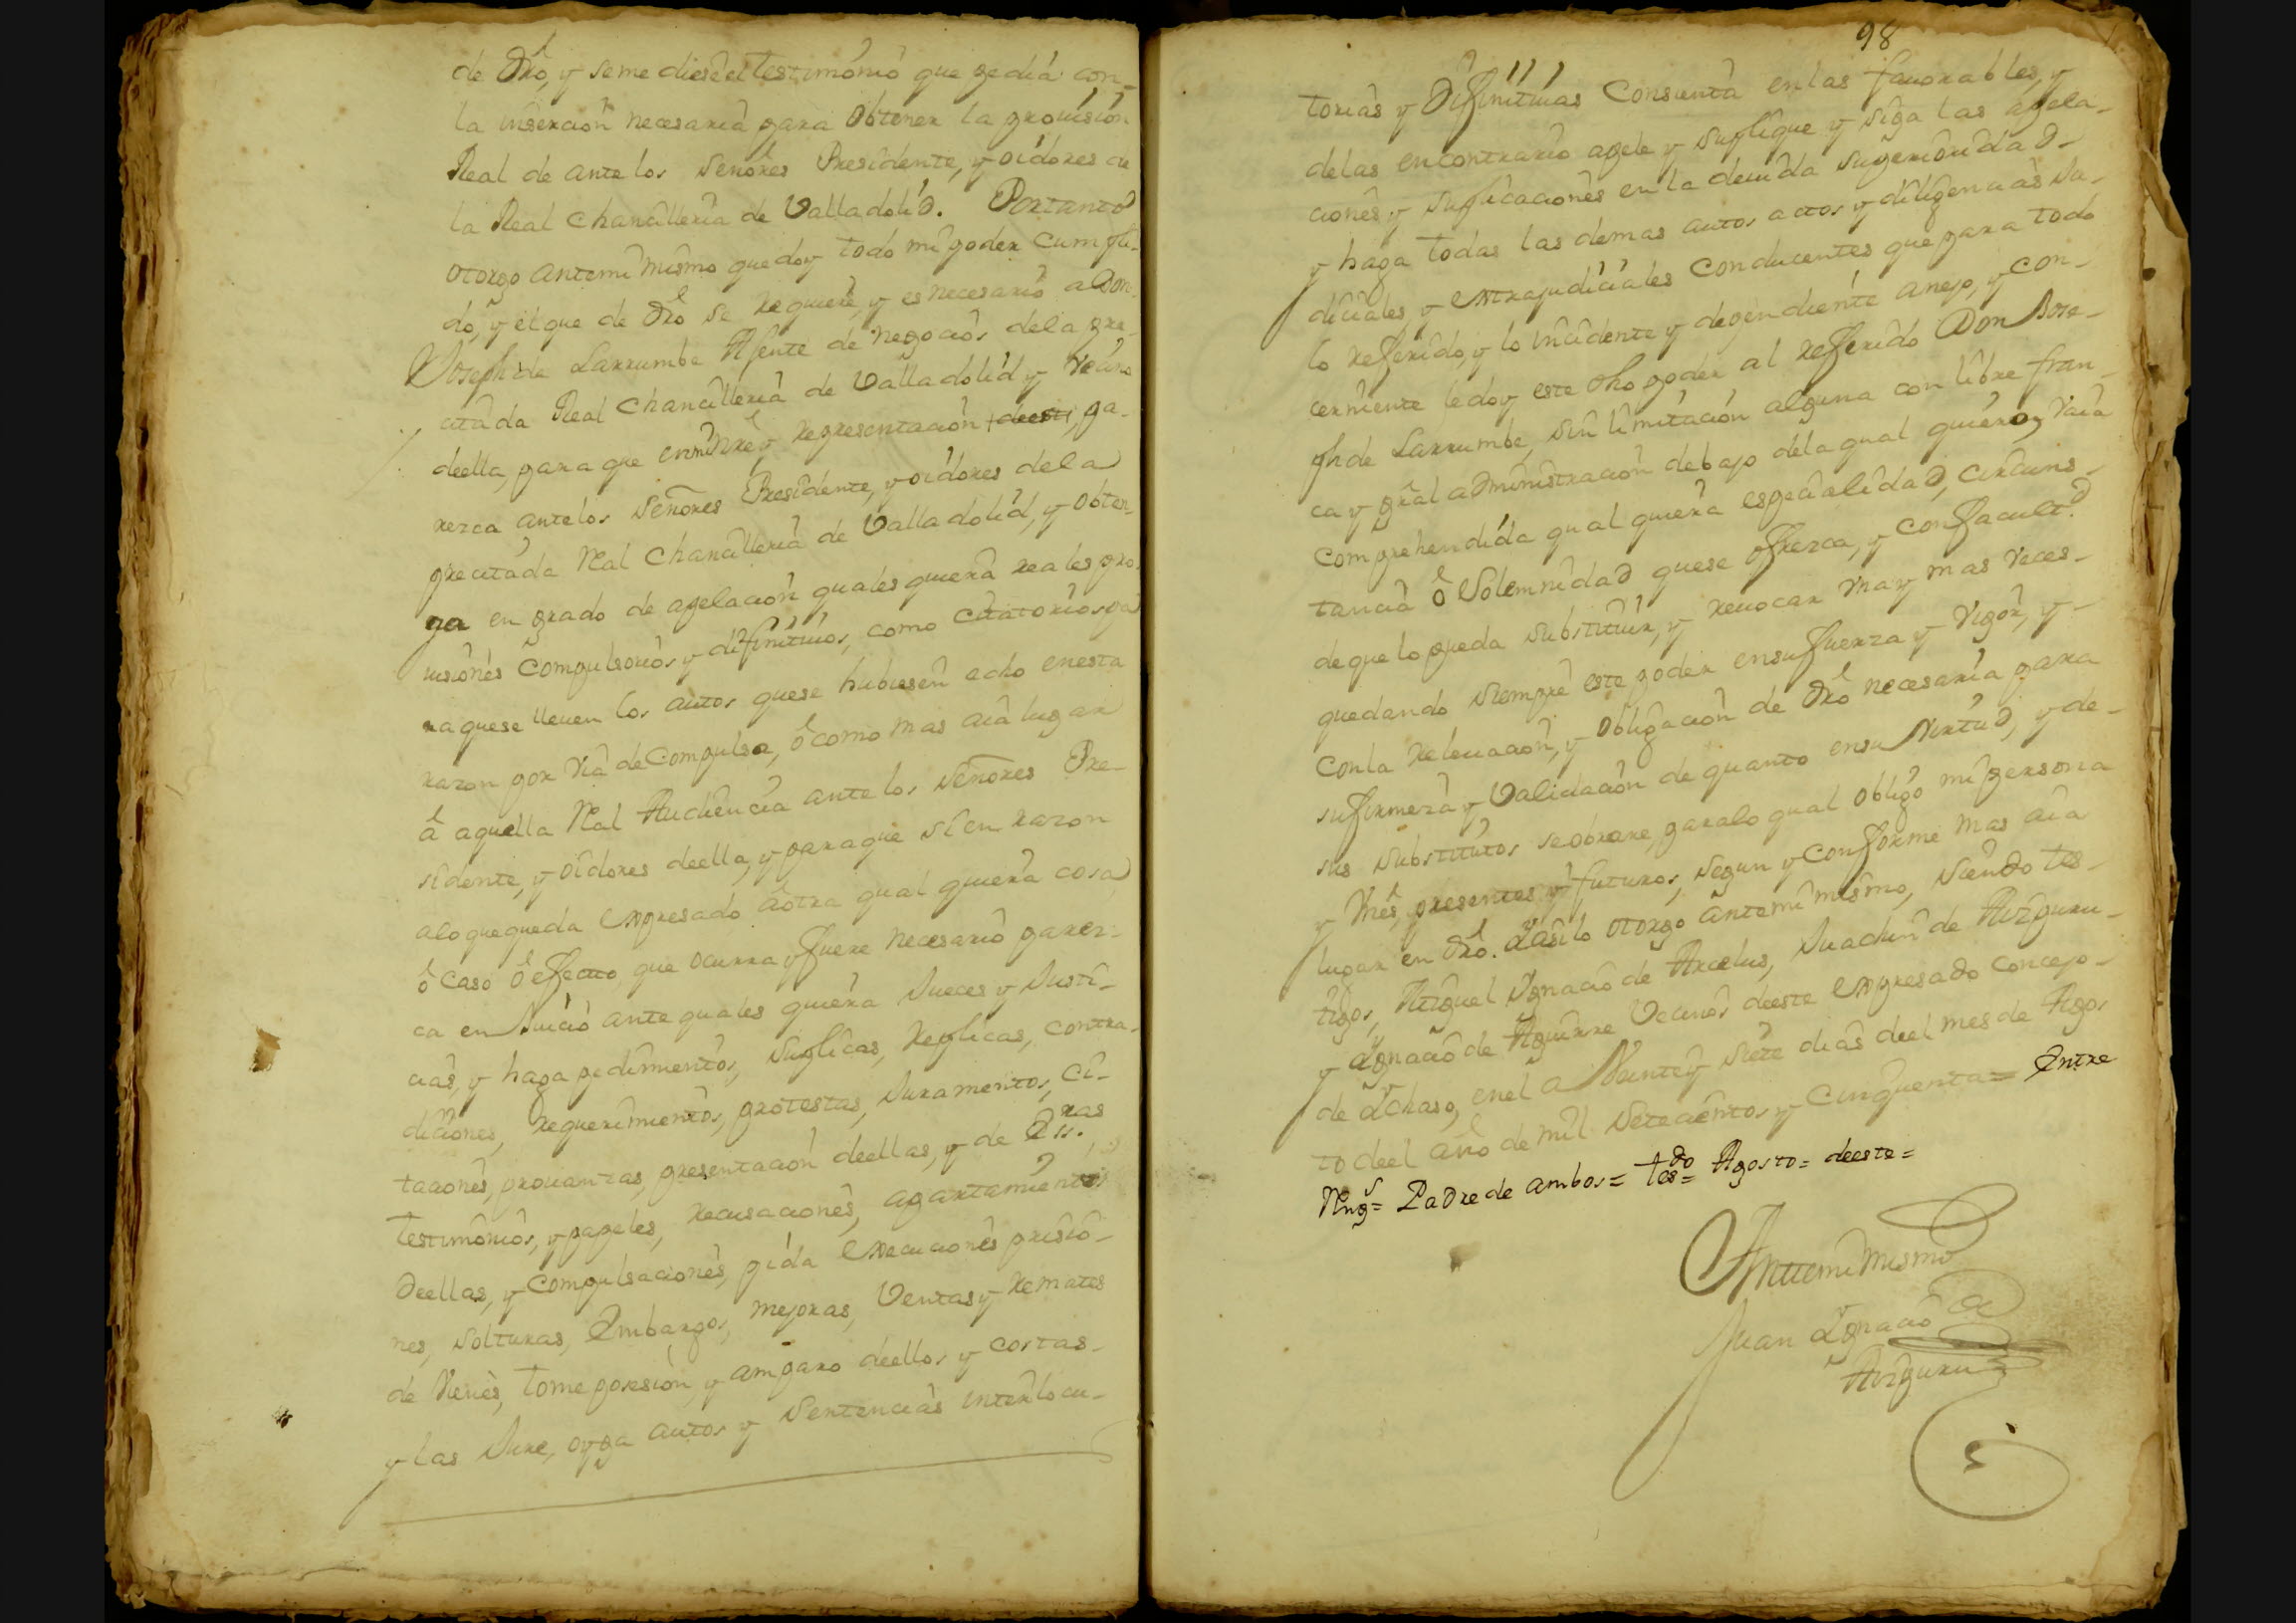 de dro, y seme diese el testimonio que pedia con
la insercion necesaria para obtener la provision
Real de ante los Señores Presidente, y oidores de
la Real Chancilleria de Valladolid. Portanto
otorgo antemi mismo que doy todo mi poder cumpli-
do, y el que de dro se requiere, y es necesario a Don
Joseph de Larrumbe Agente de negocios de la pre-
citada Real Chancilleria de Valladolid y vecino
de ella, para que en mi nre, y representacion, pa-
rezca antelos Señores Presidente, y oidores de la
precitada Real Chancilleria de Valladolid, y obten-
ga en grado de apelacion quales quiera reales pro-
visiones compulsorios y difinitivos, como citatorios pa
ra que se lleven los autos quese hubiesen echo en esta
razon por via de compulsa, ô como mas aia lugar
â aquella Real Audiencia ante los Señores Pre-
sidente, y oidores de ella, y para que si en razon
alo que queda expresado â otra qual quiera cosa
ô caso ô efecto, que ocurra y fuere necesario parez-
ca en Juicio ante quales quiera Jueces y Justi-
cias, y haga pedimentos, suplicas, replicas, contra-
diciones, requerimientos, protestas, Juramentos, ci-
taciones, provanzas, presentacion de ellas, y de Ess.ras
testimonios, y papeles, recusaciones, apartamientos
de ellas, y compulsaciones, pida execuciones prisio-
nes, solturas, Embargos, mejoras, Ventas y remates
de Vienes, tome posesion, y amparo de ellos y costas
y las Jure, oyga autos y Sentencias interlocu-
98
torias y Difinitivas consienta en las favorables, y
de las en contrario apele y suplique y siga las apela-
ciones y suplicaciones en la devida superioridad
y haga todas las demas autos actos y diligencias Ju-
diciales y extrajudiciales conducentes que para todo
lo referido, y lo incidente y dependiente anejo, y con-
cerniente le doy este dho poder al referido Don Jose-
ph de Larrumbe, sin limitacion alguna con libre fran-
ca y gral administracion debajo de la qual quiero, vaia
comprehendida qual quiera especialidad, circuns-
tancia ô Solemnidad quese ofrezca, y con facult.d
de que lo pueda substituir, y revocar una y mas veces
quedando siempre este poder en su fuerza y vigor, y
con la relevacion, y obligacion de dro necesaria para
su firmeza y Validacion de quanto en su virtud, y de
sus substitutos se obrare, para lo qual obligo mi persona
y vnes, presentes y futuros, segun y conforme mas aia
lugar en dro. Y asi lo otorgo antemi mismo, siendo tes-
tigos, Miguel Ygnacio de Arcelus, Juachin de Aizpuru
y Ygnacio de Aguirre Vecinos de este expresado concejo
de Ychaso, en el a Veinte y siete dias de el mes de Agos
to de el año de mil setecientos y cinquenta = Entre
Rng.s = Padre de ambos = t.do es = Agosto = de este =
Antemi mismo
Juan Ygnacio de
Aizpuru